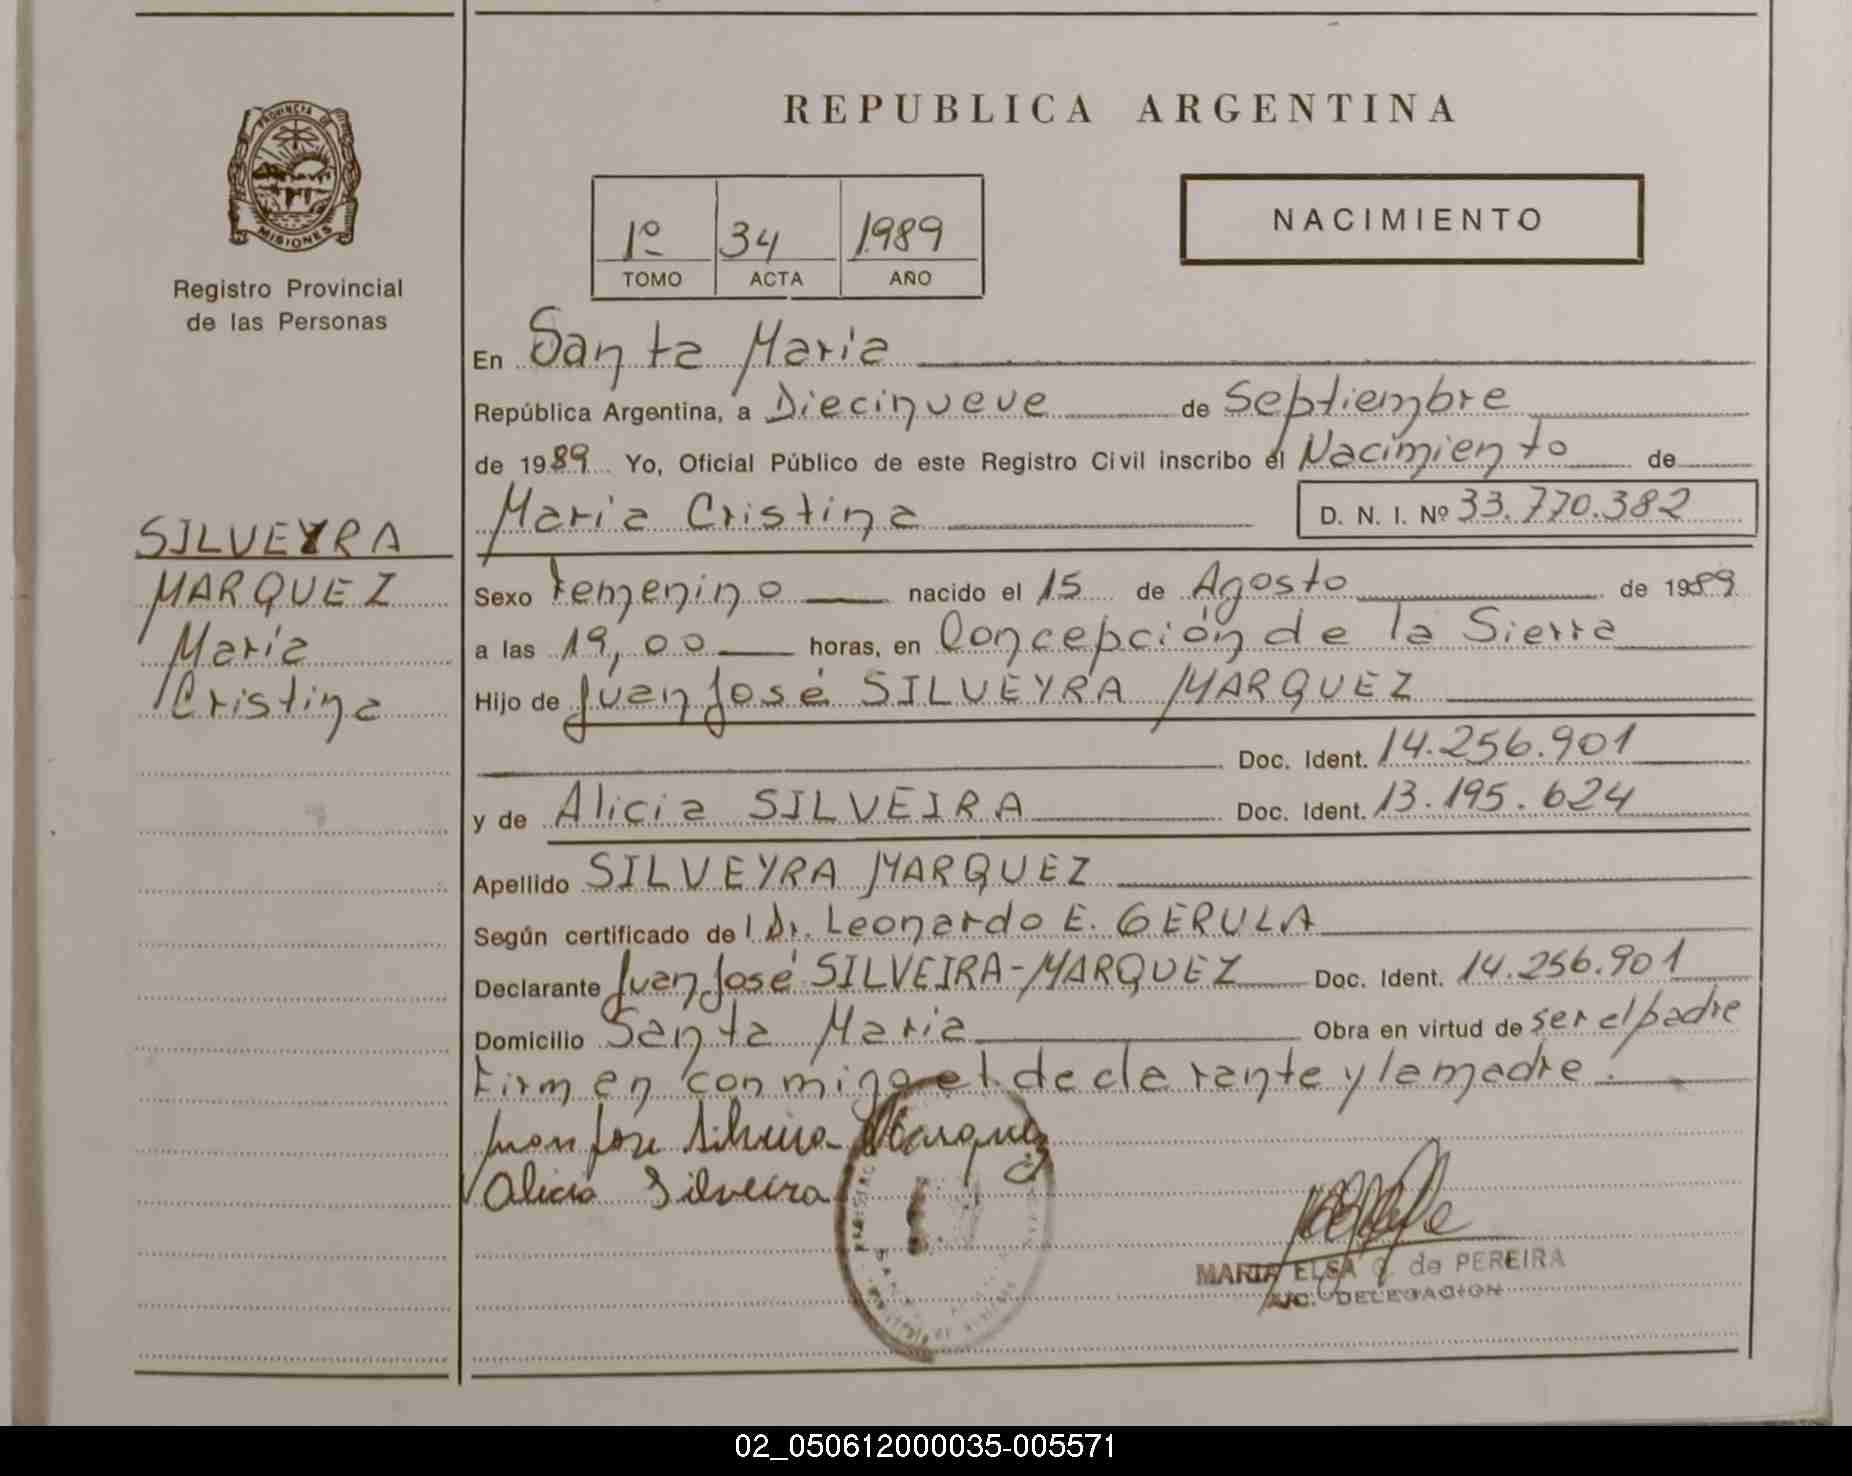 PROVINCIA DE
MISIONES
Registro Provincial
de las Personas
SILVEYRA
MARQUEZ
María
Cristina
REPUBLICA ARGENTINA
1º 34 1989
TOMO ACTA AÑO
NACIMIENTO
En Santa María
República Argentina, a Diecinueve de Septiembre
de 1989 Yo, Oficial Público de este Registro Civil inscribo el Nacimiento de
María Cristina D. N. I. Nº 33.770.382
Sexo Femenino nacido el 15 de Agosto de 1989
a las 19,00 horas, en Concepción de la Sierra
Hijo de Juan José SILVEYRA MARQUEZ
Doc. Ident. 14.256.901
y de Alicia SILVEIRA Doc. Ident. 13.195.624
Apellido SILVEYRA MARQUEZ
Según certificado del Dr. Leonardo E. GERULA
Declarante Juan José SILVEIRA-MARQUEZ Doc. Ident. 14.256.901
Domicilio Santa María Obra en virtud de ser el padre
Firm en conmigo el declarante y la madre.
Juan Jose Silveira Marquez
Alicia Silveira
MARIA ELSA de PEREIRA
A/C. DELEGACION
02_050612000035-005571